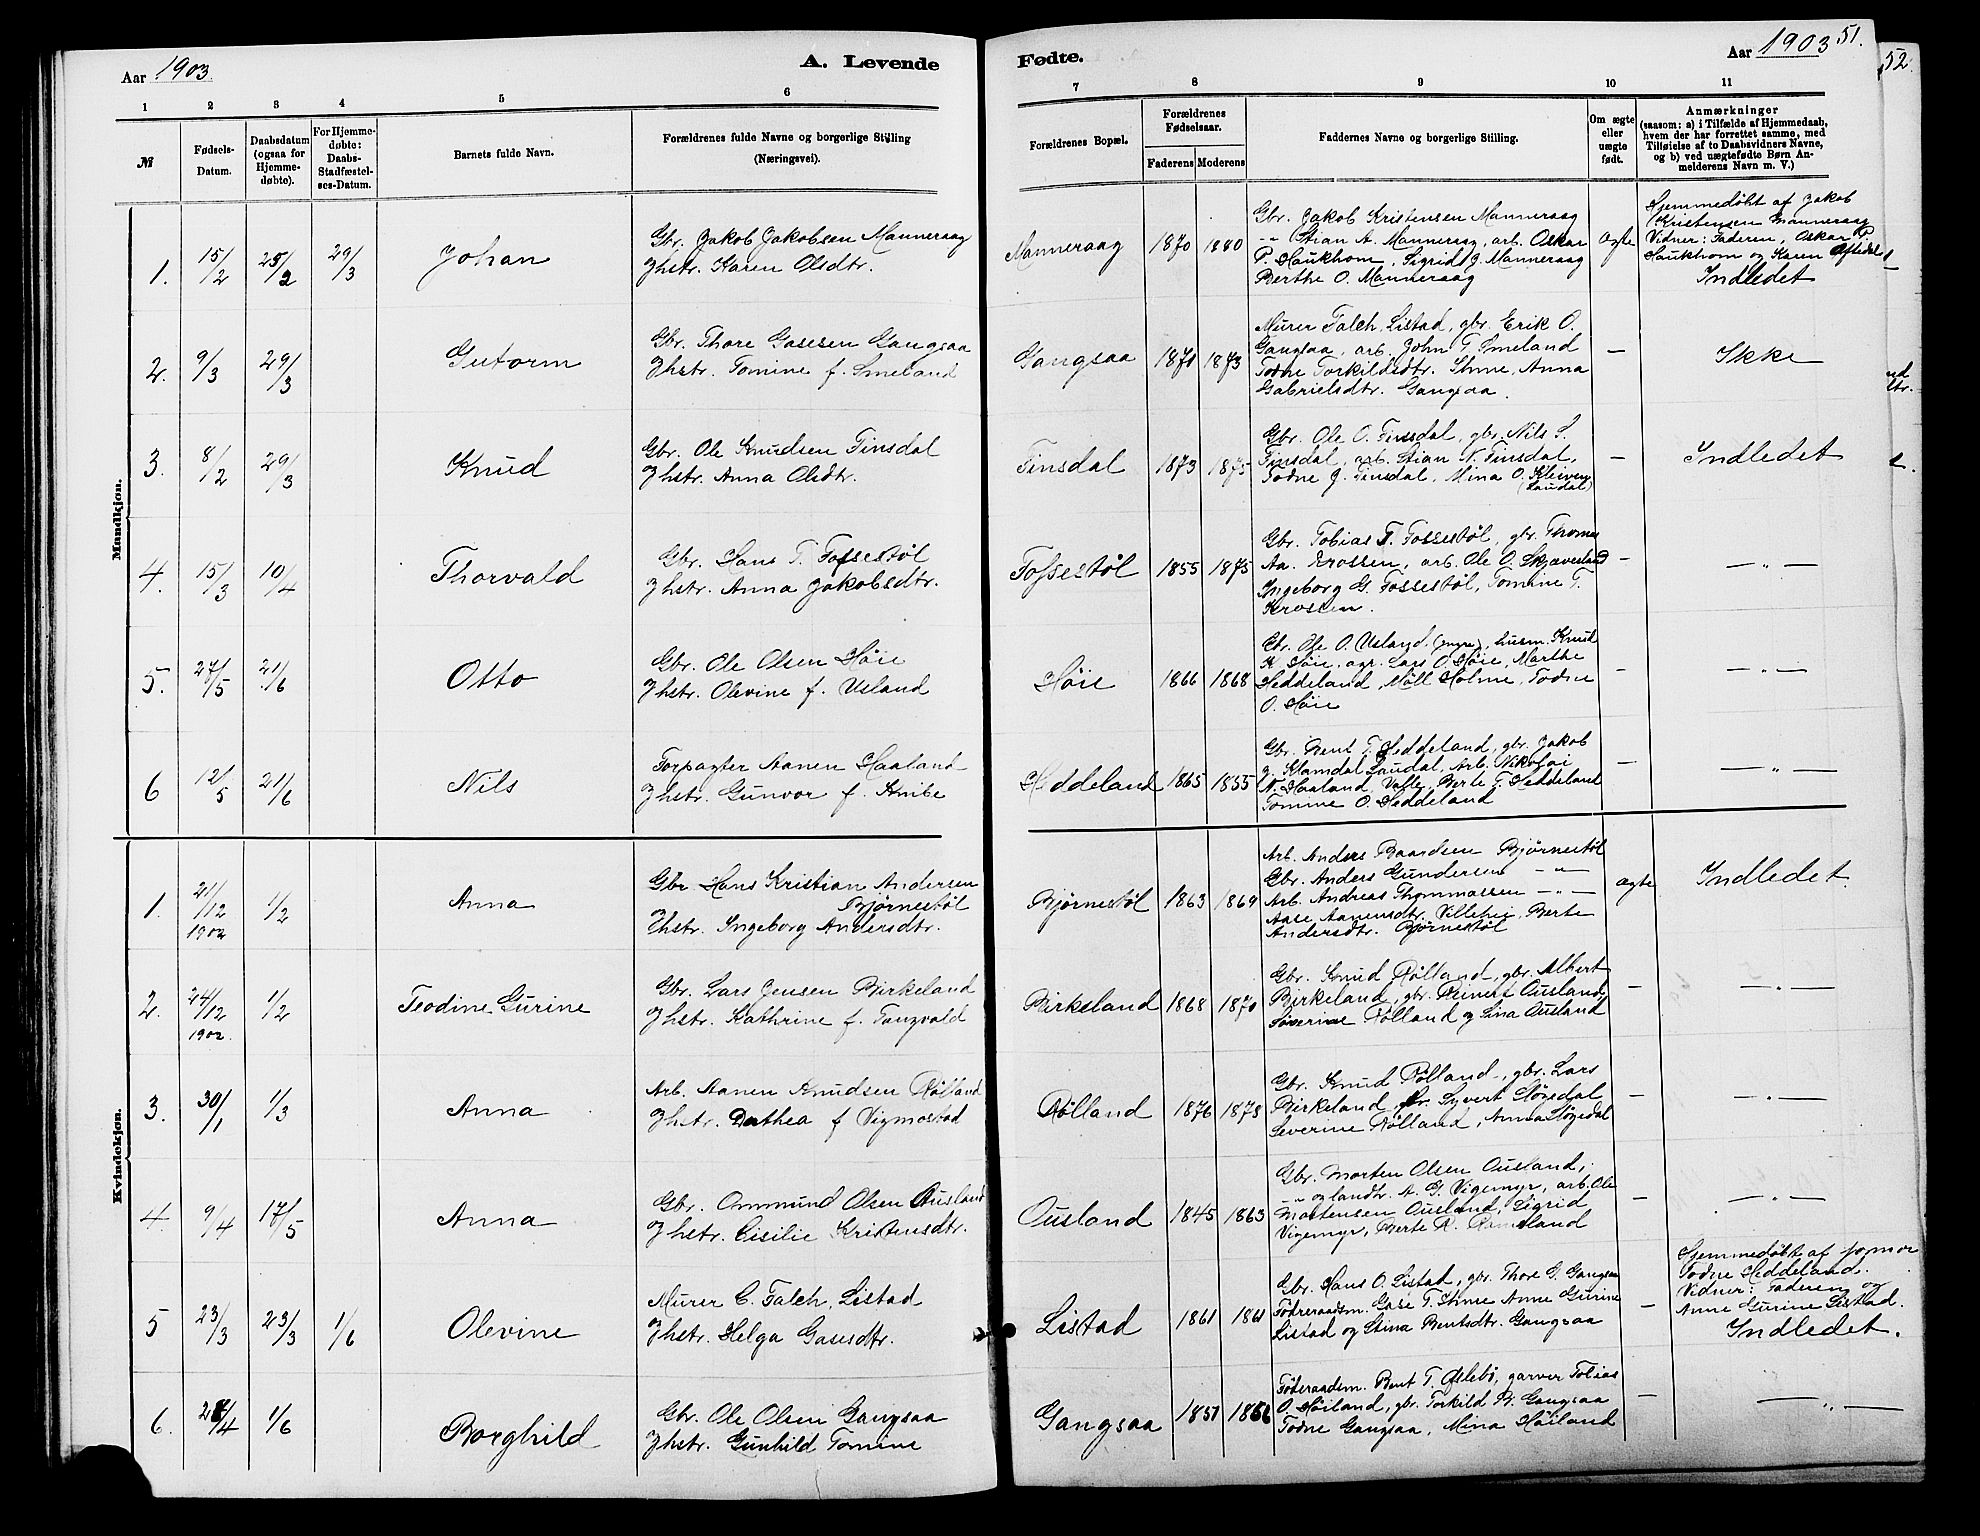 Aar 1903.
A. Levende
Fødte.
Aar 1903
51.
52.
1 2 3 4 5 6
7 8 9 10 11
№
Fødsels-
Datum.
Daabsdatum
(ogsaa for
Hjemme-
døbte).
For Hjemme-
døbte:
Daabs-
Stadfæstel-
ses-Datum.
Barnets fulde Navn.
Forældrenes fulde Navne og borgerlige Stilling
(Næringsvei).
Forældrenes Bopæl.
Forældrenes
Fødselsaar.
Faderens Moderens
Faddernes Navne og borgerlige Stilling.
Om ægte
eller
uægte
født.
Anmærkninger
(saasom: a) i Tilfælde af Hjemmedaab,
hvem der har forrettet samme, med
Tilføielse af to Daabsvidners Navne,
og b) ved uægtefødte Børn An-
melderens Navn m. V.)
Mandkjøn.
1. 15/2 25/2 29/3 Johan
Gbr. Jakob Jakobsen Manneraag
Hstr. Karen Olsdtr.
Manneraag 1870 1880
Gbr. Jakob Kristensen Manneraag
-"- Stian A. Manneraag, arb. Oskar
P. Haukhom, Sigrid J. Manneraag
Berthe O. Manneraag
Ægte
Hjemmedøbt af Jakob
Kristensen Manneraag
Vidner: Faderen, Oskar P.
Haukhom og Karen
Indledet
2. 9/3 29/3 Gutorm
Gbr. Thore Gasesen Gangsaa
Hstr. Tomine f. Smeland
Gangsaa 1871 1873
Murer Falch, Listad, gbr. Erik O.
Gangsaa, arb. John T. Smeland
Todne Torkildsdtr. Ihme, Anna
Gabrielsdtr. Gangsaa.
—
Ikke
3. 8/2 29/3 Knud
Gbr. Ole Knudsen Finsdal
Hstr. Anna Olsdtr.
Finsdal 1873 1875
Gbr. Ole O. Finsdal, gbr. Nils S.
Finsdal, arb. Stian N. Finsdal,
Todne J. Finsdal, Mina O. Kleiven
(Laudal)
—
Indledet
4. 15/3 10/4 Thorvald
Gbr. Hans T. Fossestøl
Hstr. Anna Jakobsdtr.
Fossestøl 1855 1875
Gbr. Tobias T. Fossestøl, gbr. Thomas
Aa. Krossen, arb. Ole O. Skjævesland
Ingeborg G. Fossestøl, Tomine T.
Krossen.
—
— " —
5. 27/5 21/6 Otto
Gbr. Ole Olsen Høie
Hstr. Olevine f. Usland
Høie 1866 1868
Gbr. Ole O. Usland (yngre), husm. Knud
K. Høie, agr. Lars O. Høie, Marthe
Heddeland, Møll Holme, Todne
O. Høie
—
— " —
6 12/5 21/6 Nils
Forpagter Aanen Haaland
Hstr. Gunvor f. Knibe
Heddeland 1865 1855
Gbr. Bent T. Heddeland, gbr. Jakob
J. Klamdal Laudal, Arb. Nikolai
N. Haaland, Valle, Berte T. Heddeland
Tomine O. Heddeland
—
— " —
Kvindekjøn.
1. 21/12 1902 1/2 Anna
Gbr Hans Kristian Andersen
Bjørnestøl
Hstr. Ingeborg Andersdtr.
Bjørnestøl 1863 1869
Arb. Anders Baardsen Bjørnestøl
Gbr. Anders Gundersen — " —
Arb. Andreas Thommassen — " —
Aase Aanensdtr. Villehei, Berte
Andersdtr. Bjørnestøl
Ægte
Indledet.
2. 24/12 1902. 1/2 Teodine Gurine
Gbr. Lars Jensen Birkeland
Hstr. Kathrine f. Tangvald
Birkeland 1868 1870
Gbr. Knud Rølland, gbr. Albert
Birkeland, gbr. Reinert Ousland,
Severine Rølland og Sina Ousland
—
— " —
3. 30/1 1/3 Anna
Arb. Aanen Knudsen Rølland
Hstr. Dorthea f Vigmostad
Rølland 1876 1878
Gbr. Knud Rølland, gbr. Lars
Birkeland, gbr. Syvert Støgedal
Severine Rølland, Anna Støgedal
—
— " —
4. 9/4 17/5 Anna
Gbr. Ommund Olsen Ousland
Hstr. Cisilie Kristensdtr.
Ousland 1845 1863
Gbr. Morten Olsen Ousland,
-"- og landh. A. G. Vigemyr, arb. Ole
Mortensen Ousland, Sigrid
Vigemyr, Berte R.
—
— " —
5 23/3 23/3 1/6 Olevine
Murer C. Falch, Listad
Hstr. Helga Gasesdtr.
Listad 1861 1861
Gbr. Hans O. Listad, gbr. Thore G. Gangsaa
Føderaadsm. Gase T. Ihme Anne Gurine
Listad og Stina Bentsdtr. Gangsaa
—
Hjemmedøbt af jomor
Todne Heddeland.
Vidner: Faderen og
Anne Gurine Listad.
Indledet.
6. 28/4 1/6 Borghild
Gbr. Ole Olsen Gangsaa
Hstr. Gunhild Tomine
Gangsaa 1851 1866
Føderaadsm. Bent T. Øslebø, garver Tobias
O. Høiland, gbr. Torkild B. Gangsaa
Todne Gangsaa, Mina Høiland
—
— " —